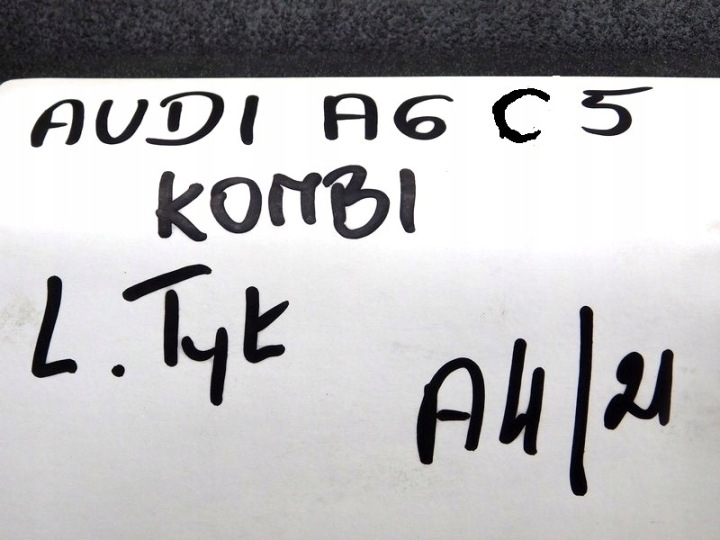 AUDI A6 C5
KOMBI
L. Tył
A4/21